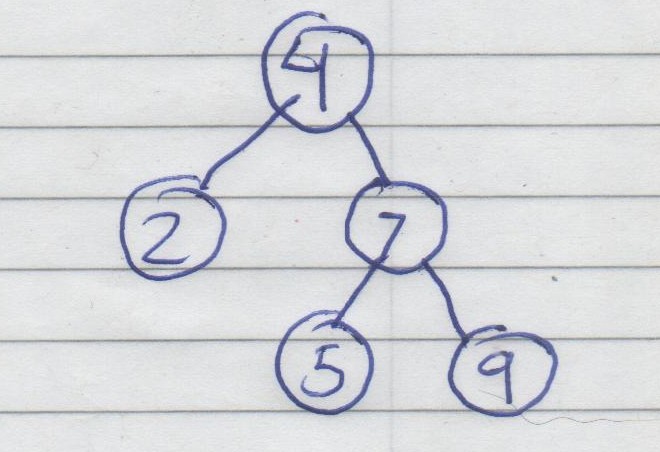 4
2 7
5 9